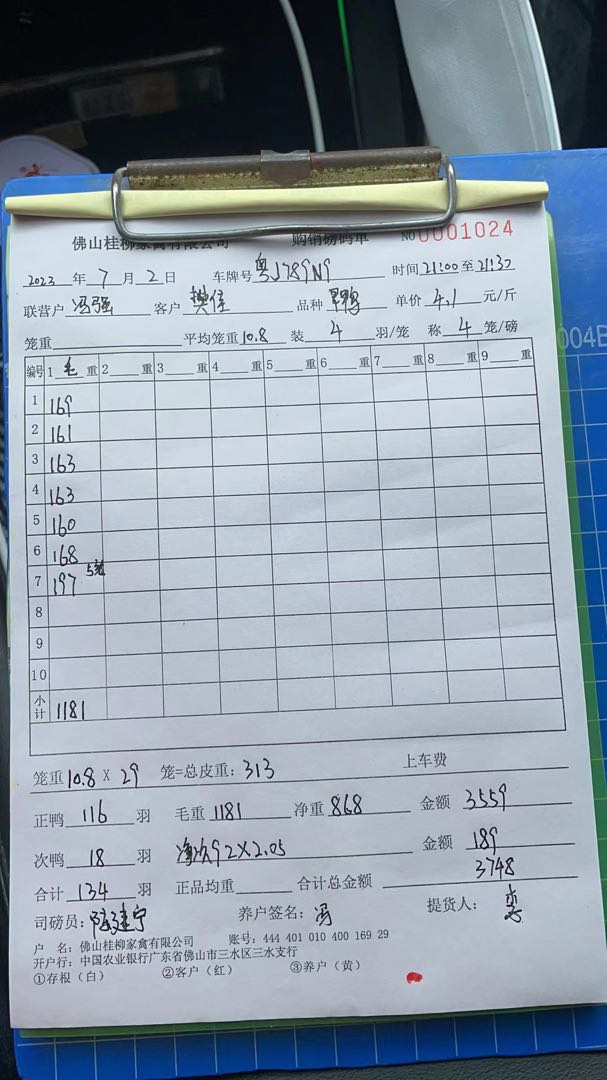 佛山桂柳家禽有限公司 购销磅码单 NO 0001024
2023 年 7 月 2 日 车牌号 粤J789N9 时间 21:00 至 21:30
联营户 冯强 客户 樊佳 品种 单价 4.1 元/斤
笼重 平均笼重 10.8 装 4 羽/笼 称 4 笼/磅
编号 1 毛 重 2 重 3 重 4 重 5 重 6 重 7 重 8 重 9 重
1 169
2 161
3 163
4 163
5 160
6 168
7 197 5笼
8
9
10
小计 1181
笼重 10.8 X 29 笼=总皮重: 313 上车费
正鸭 116 羽 毛重 1181 净重 868 金额 3559
次鸭 18 羽 净次92×2.05 金额 189
合计 134 羽 正品均重 合计总金额 3748
司磅员: 养户签名: 冯 提货人:
户 名: 佛山桂柳家禽有限公司 账号: 444 401 010 400 169 29
开户行: 中国农业银行广东省佛山市三水区三水支行
①存根（白） ②客户（红） ③养户（黄）
004B